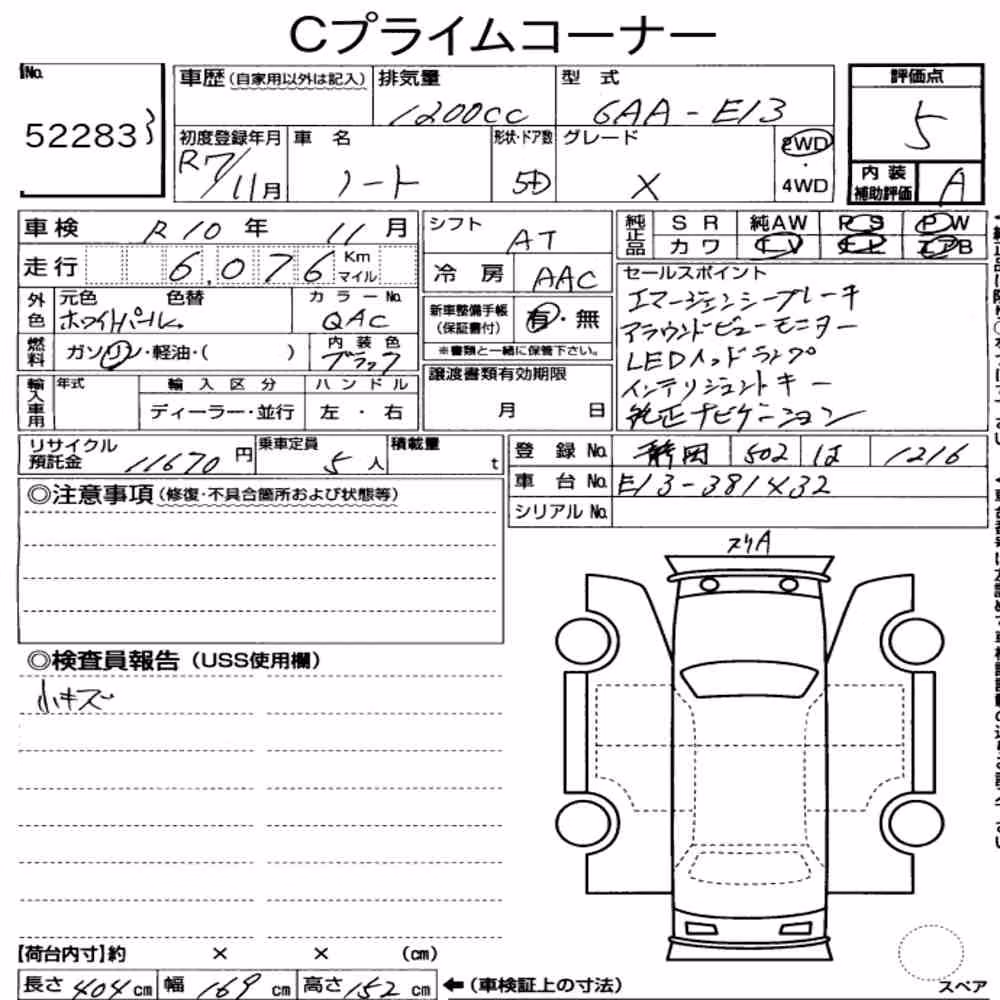 Cプライムコーナー
No.
52283 3
車歴 (自家用以外は記入)
排気量
1200cc
型 式
6AA-E13
評価点
5
初度登録年月
R7/11月
車 名
ノート
形状・ドア数
5D
グレード
X
2WD
・
4WD
内装
補助評価
A
車検 R10年 11月
シフト AT
純正品
SR 純AW PS PW
カワ TV
走行 6,076 Km
マイル
冷 房 AAC
セールスポイント
エマージェンシーブレーキ
アラウンドビューモニター
LEDヘッドランプ
インテリジェントキー
純正ナビゲーション
外色
元色 色替
ホワイトパール
カラーNo.
QAC
新車整備手帳
(保証書付)
有・無
※書類と一緒に保管下さい。
燃料
ガソリン・軽油・( )
内装色
ブラック
譲渡書類有効期限
月 日
輸入車用
年式
輸入区分
ディーラー・並行
ハンドル
左 ・ 右
リサイクル
預託金
11670円
乗車定員
5人
積載量
t
登 録 No. 静岡 502 は 1216
車 台 No. E13-381432
シリアル No.
◎注意事項 (修復・不具合箇所および状態等)
スリA
◎検査員報告 (USS使用欄)
小キズ
【荷台内寸】約 × × (cm)
長さ 404 cm 幅 169 cm 高さ 152 cm ←(車検証上の寸法)
スペア